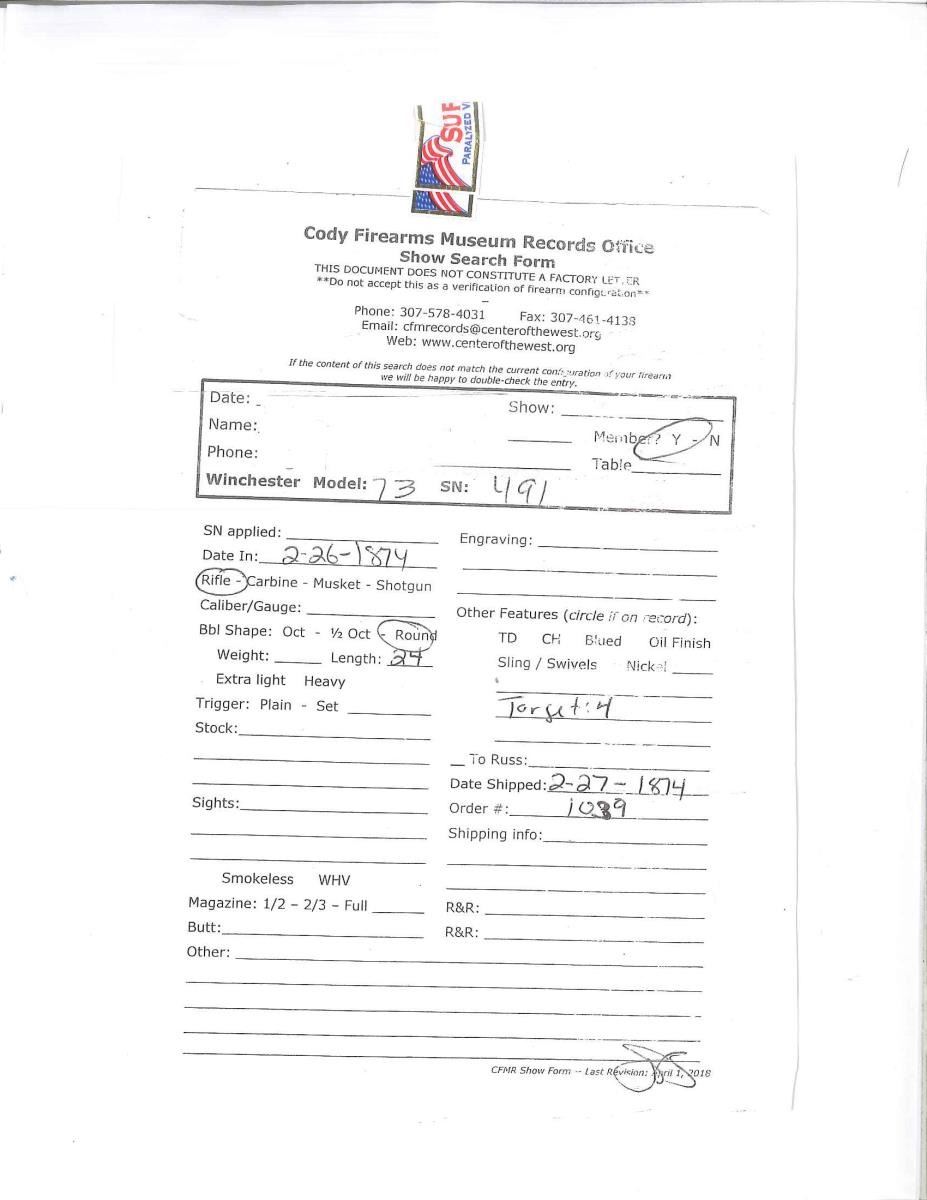 SUP
PARALYZED V
Cody Firearms Museum Records Office
Show Search Form
THIS DOCUMENT DOES NOT CONSTITUTE A FACTORY LETTER
**Do not accept this as a verification of firearm configuration**
Phone: 307-578-4031 Fax: 307-461-4138
Email: cfmrecords@centerofthewest.org
Web: www.centerofthewest.org
If the content of this search does not match the current configuration of your firearm
we will be happy to double-check the entry.
Date: Show:
Name: Member? Y - N
Phone: Table
Winchester Model: 73 SN: 491
SN applied: Engraving:
Date In: 2-26-1874
Rifle - Carbine - Musket - Shotgun
Caliber/Gauge: Other Features (circle if on record):
Bbl Shape: Oct - ½ Oct - Round TD CH Blued Oil Finish
Weight: Length: 24 Sling / Swivels Nickel
Extra light Heavy
Trigger: Plain - Set Target: 4
Stock:
To Russ:
Date Shipped: 2-27-1874
Sights: Order #: 1039
Shipping info:
Smokeless WHV
Magazine: 1/2 - 2/3 - Full R&R:
Butt: R&R:
Other:
CFMR Show Form -- Last Revision: April 1, 2018